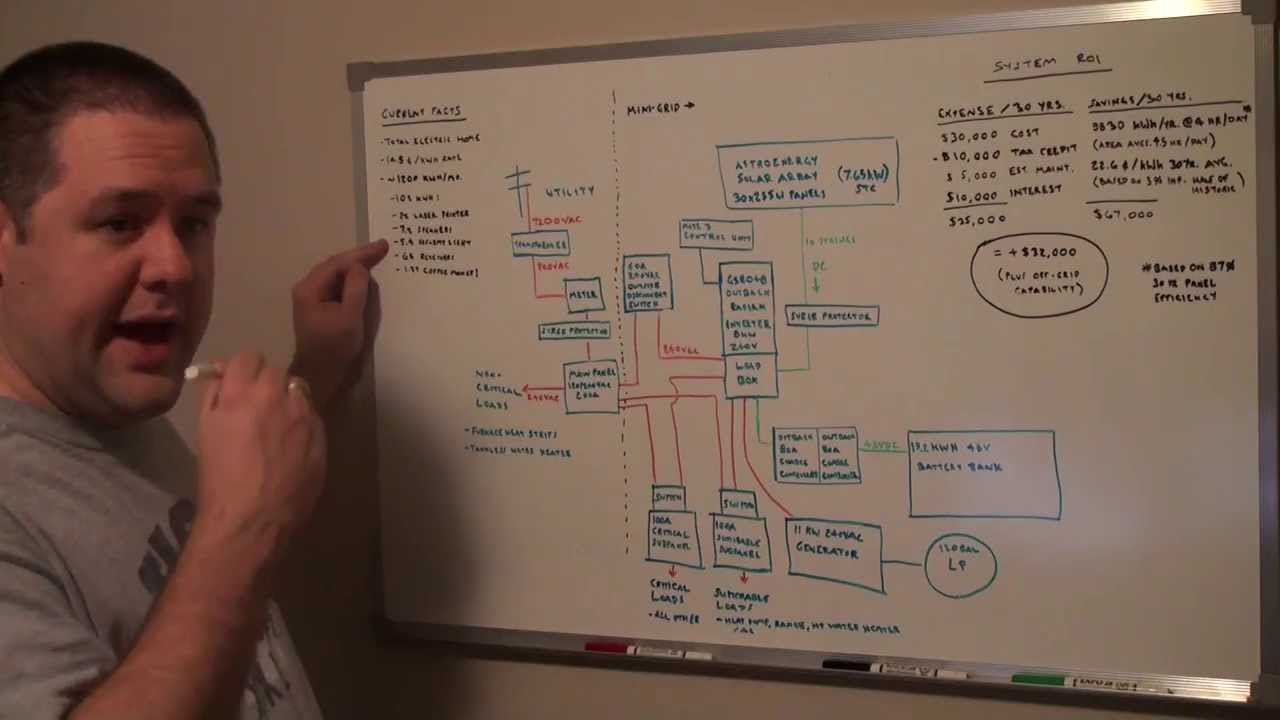 CURRENT FACTS
- TOTAL ELECTRIC HOME
¢/KWH RATE
~1200 KWH/MO.
KWH:
LASER PRINTER
SPEAKERS
RECEIVERS
COFFEE MAKER!
UTILITY
7200VAC
TRANSFORMER
240VAC
METER
SURGE PROTECTOR
MAIN PANEL
120/240VAC
200A
240VAC
NON-
CRITICAL
LOADS
- FURNACE HEAT STRIPS
- TANKLESS WATER HEATER
MINI-GRID →
60A
240VAC
OUTSIDE
DISCONNECT
SWITCH
240VAC
MATE 3
CONTROL UNIT
GS8048
OUTBACK
RADIAN
INVERTER
8KW
240V
LOAD
BOX
ASTROENERGY
SOLAR ARRAY
30X255W PANELS
(7.65KW)
STC
10 STRINGS
DC
SURGE PROTECTOR
OUTBACK
80A
CHARGE
CONTROLLER
OUTBACK
80A
CHARGE
CONTROLLER
48VDC
19.2 KWH 48V
BATTERY BANK
SWITCH
100A
CRITICAL
SUBPANEL
CRITICAL
LOADS
- ALL OTHER
SWITCH
100A
SUBPANEL
LOADS
- HEAT PUMP, RANGE, HT WATER HEATER
11 KW 240VAC
GENERATOR
120GAL
LP
SYSTEM ROI
EXPENSE / 30 YRS.
$30,000 COST
- $10,000 TAX CREDIT
$ 5,000 EST. MAINT.
$10,000 INTEREST
$35,000
SAVINGS / 30 YRS.
9830 KWH/YR. @ 4 HR/DAY*
(AREA AVG. 4.5 HR/DAY)
22.6 ¢/KWH 30YR. AVG.
(BASED ON 3% INF. HALF OF
HISTORIC)
$67,000
= + $32,000
(PLUS OFF-GRID
CAPABILITY)
*BASED ON 87%
30 YR PANEL
EFFICIENCY